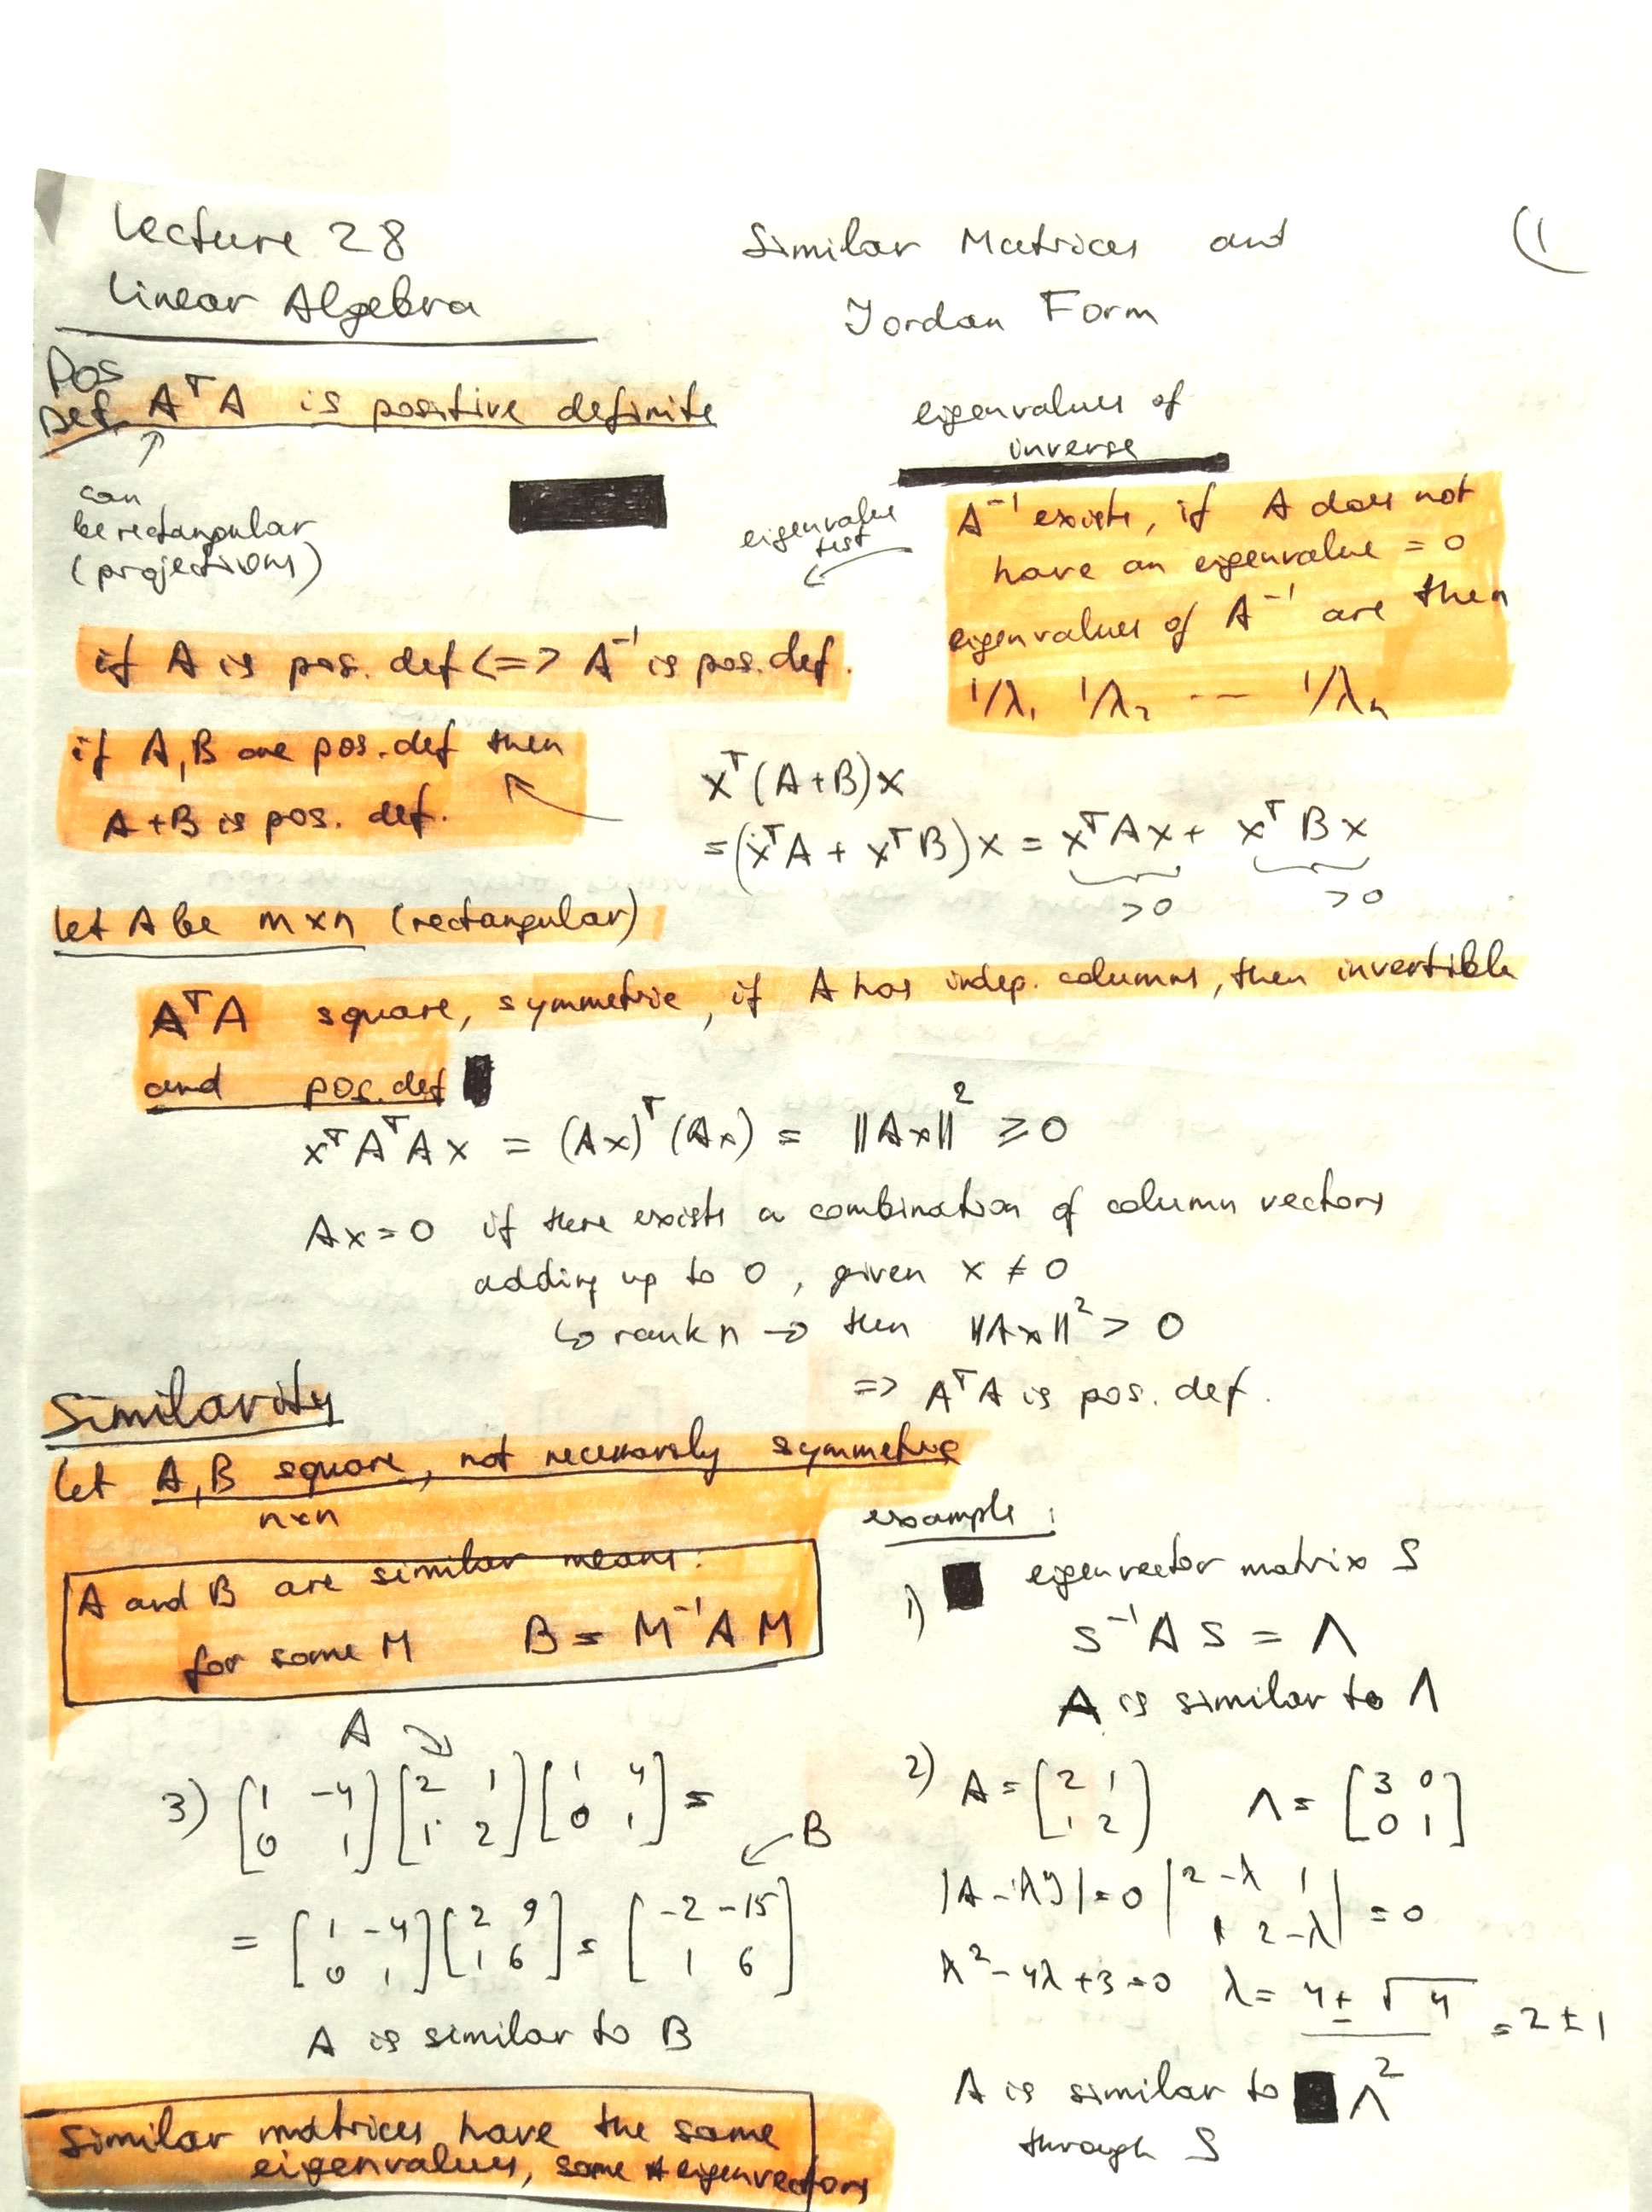 Lecture 28
Linear Algebra
Similar Matrices and
Jordan Form
(1
Pos
Def AᵀA is positive definite
↑
can
be rectangular
(projections)
eigenvalues of
inverse
eigenvalue
test
A⁻¹ exists, if A does not
have an eigenvalue = 0
eigenvalues of A⁻¹ are then
1/λ₁ 1/λ₂ ... 1/λₙ
if A is pos. def <=> A⁻¹ is pos. def.
if A, B are pos. def then
A+B is pos. def.
xᵀ(A+B)x
= (xᵀA + xᵀB)x = xᵀAx + xᵀBx
>0 >0
let A be m×n (rectangular)
AᵀA square, symmetric, if A has indep. columns, then invertible
and pos. def
xᵀAᵀAx = (Ax)ᵀ(Ax) = ||Ax||² ≥ 0
Ax = 0 if there exists a combination of column vectors
adding up to 0, given x ≠ 0
↳ rank n → then ||Ax||² > 0
=> AᵀA is pos. def.
Similarity
Let A, B square, not necessarily symmetric
n×n
A and B are similar means:
for some M B = M⁻¹AM
example:
1) eigenvector matrix S
S⁻¹AS = Λ
A is similar to Λ
2) A = [2 1
1 2] Λ = [3 0
0 1]
|A - λI| = 0 |2-λ 1
1 2-λ| = 0
λ² - 4λ + 3 = 0 λ = 4 ± √4
2 = 2 ± 1
A is similar to Λ
through S
A
3) [1 -4
0 1] [2 1
1 2] [1 4
0 1] =
B
= [1 -4
0 1] [2 9
1 6] = [-2 -15
1 6]
A is similar to B
Similar matrices have the same
eigenvalues, same # eigenvectors